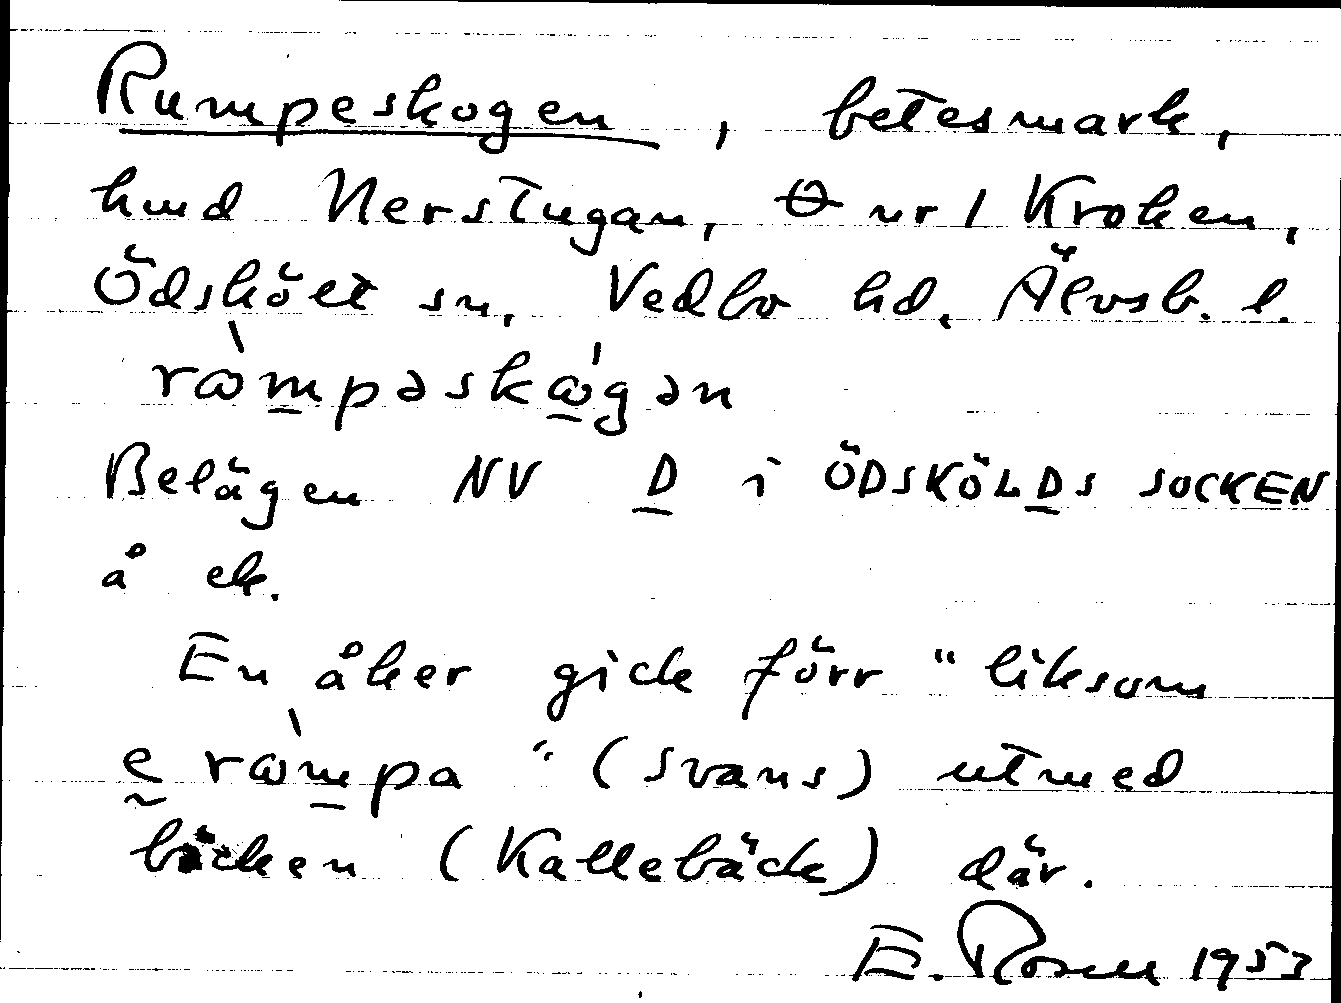 Rumpeskogen, betesmark,
hmd Nerstugan, θ nr 1 Kroken,
Ödskölt sn, Vedbo hd, Älvsb. l.
ròmpəskógən
Belägen NV D i ÖDSKÖLDS SOCKEN
å ek.
En åker gick förr "liksom
e ròmpa" (svans) utmed
bäcken (Kallebäck) där.
E. Rosell 1953